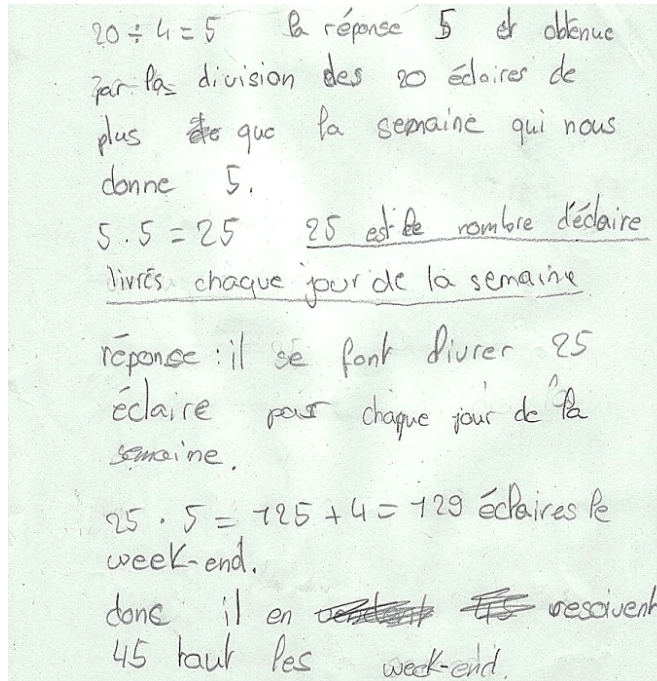 20 ÷ 4 = 5 la réponse 5 et obtenue
par la division des 20 éclaires de
plus que la semaine qui nous
donne 5.
5 . 5 = 25 25 est le nombre d'éclaire
livrés chaque jour de la semaine
réponse : il se font livrer 25
éclaire par chaque jour de la
semaine.
25 . 5 = 125 + 4 = 129 éclaires le
week-end.
donc il en resoivent
45 tout les week-end.